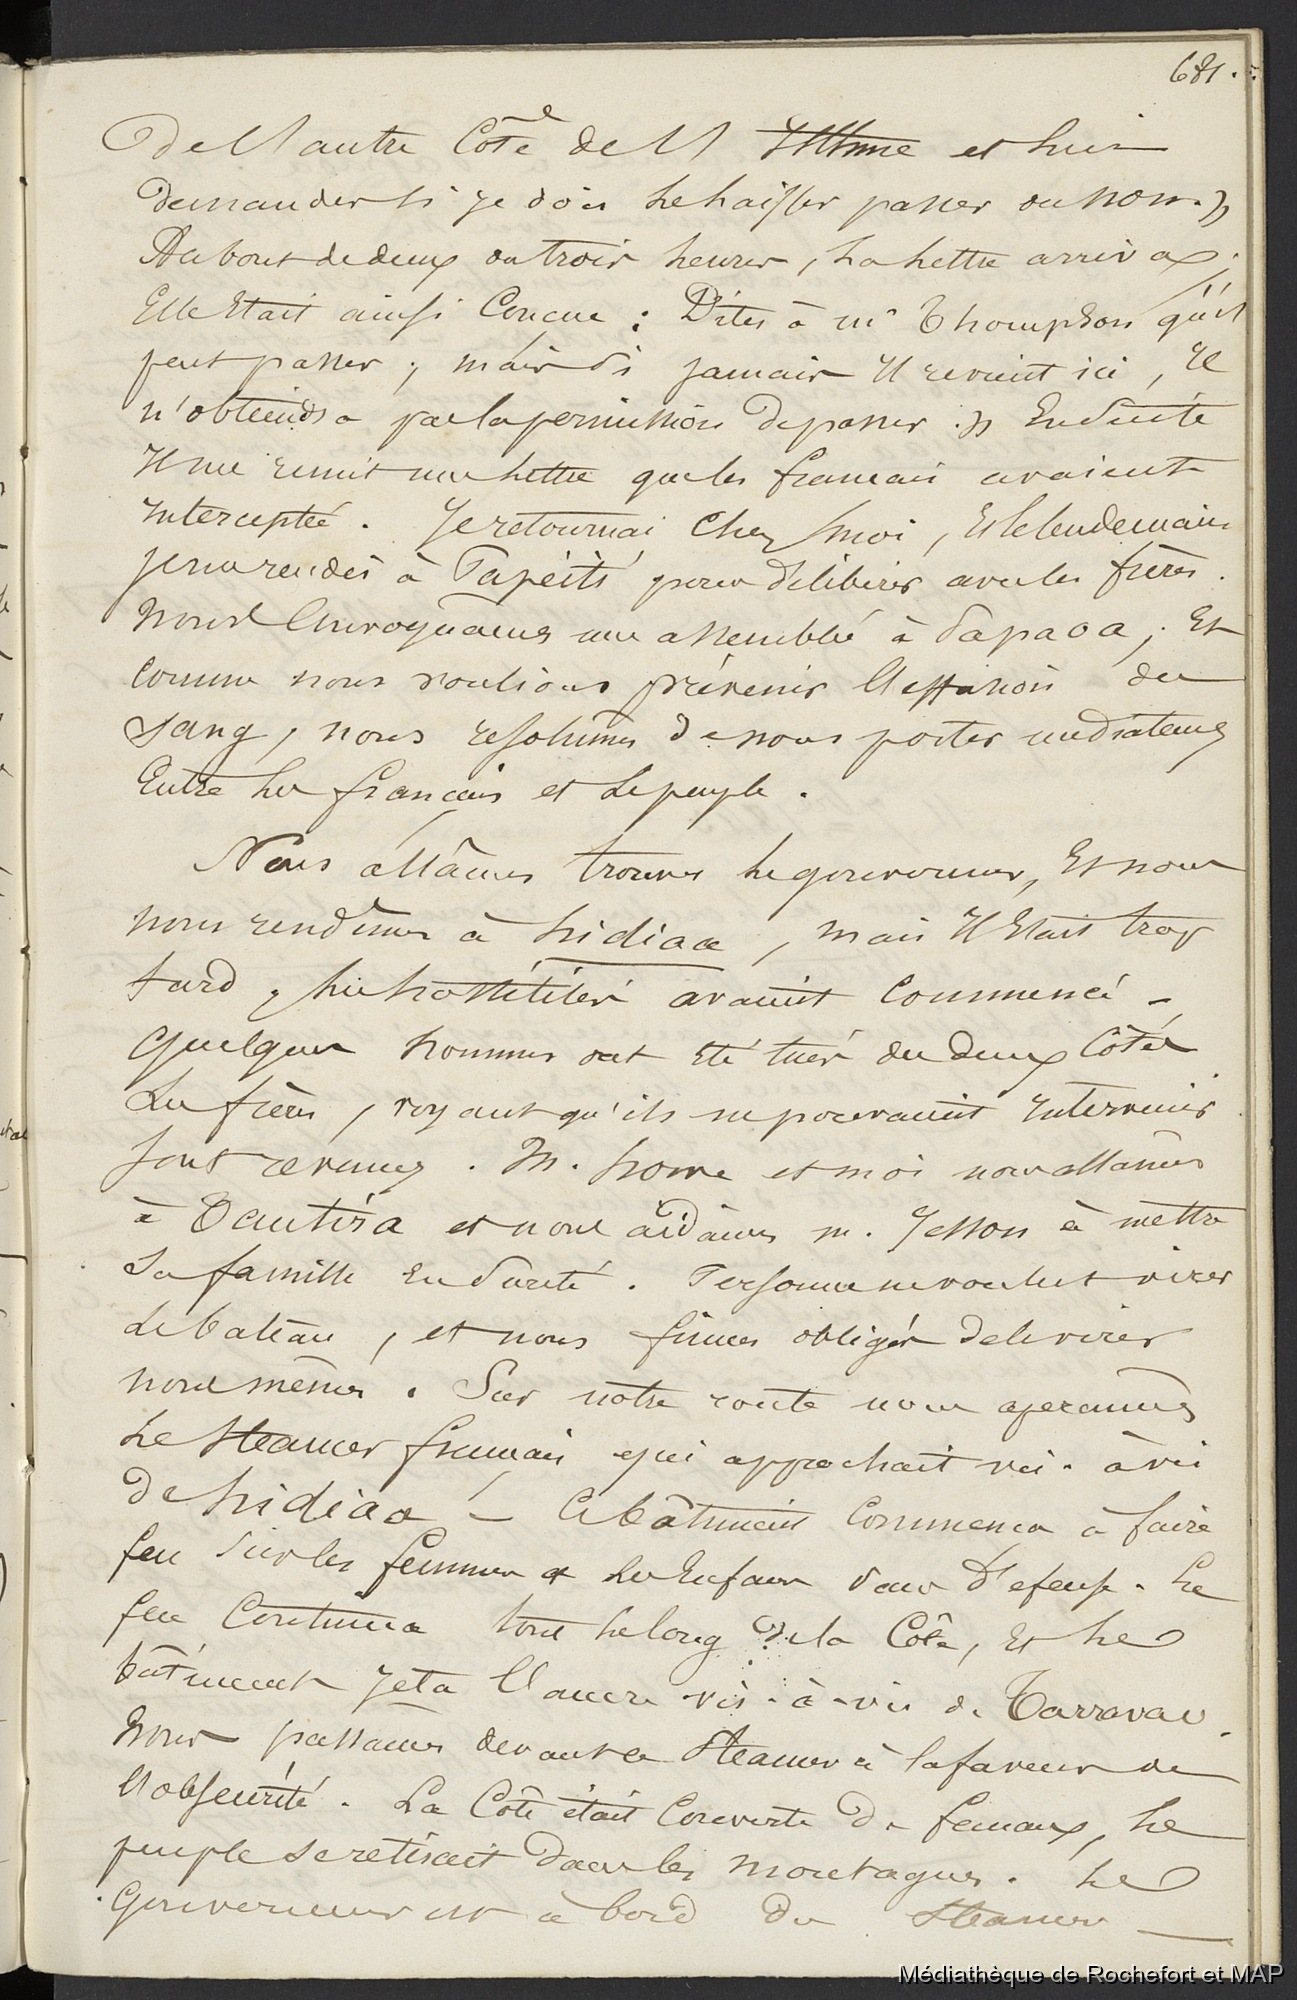 681.
De l'autre Côté de l'Isthme et lui
demander si je dois le laisser passer ou non. »
Au bout de deux ou trois heures, la lettre arriva ;
Elle Etait ainsi Concue : Dites à Mr Thompson qu'il
peut passer ; mais si jamais Il revient ici, Il
n'obtiendra pas la permission de passer. » Ensuite
Il me remit une lettre que les francais avaient
Interceptée. Je retournai Chez moi, Et le lendemain
je me rendis à Papéiti pour délibérer avec les frères.
Nous Convoquâmes une assemblée à Papaoa ; Et
comme nous voulions prévenir l'effusion du
sang, nous resolûmes de nous porter médiateurs
Entre les francais et le peuple.
Nous allâmes trouver le gouverneur, Et nous
nous rendîmes à hidiaa, mais Il Etait trop
tard, les hostilités avaient Commencé –
Quelques hommes ont Eté tués des deux Côtés
Les frères, voyant qu'ils ne pouvaient Intervenir
sont revenus. M. howe et moi nous allâmes
à Tautira et nous aidâmes M. Jesson à mettre
Sa famille En Sureté. Personne ne voulut virer
le bateau, et nous fûmes obligés de le virer
nous mêmes. Sur notre route nous aperçumes
le Steamer francais qui approchait vis-à-vis
de hidiaa – Ce bâtiment Commenca à faire
feu Sur les femmes & les Enfans sans défense. Le
feu Continua tout le long de la Côte, Et le
bâtiment Jeta l'ancre vis-à-vis de Tarravao.
Nous passâmes devant le Steamer à la faveur de
l'obscurité. La Côte était Couverte de fanaux, le
peuple se retirait dans les montagnes. Le
Gouverneur est à bord du Steamer –
Médiathèque de Rochefort et MAP